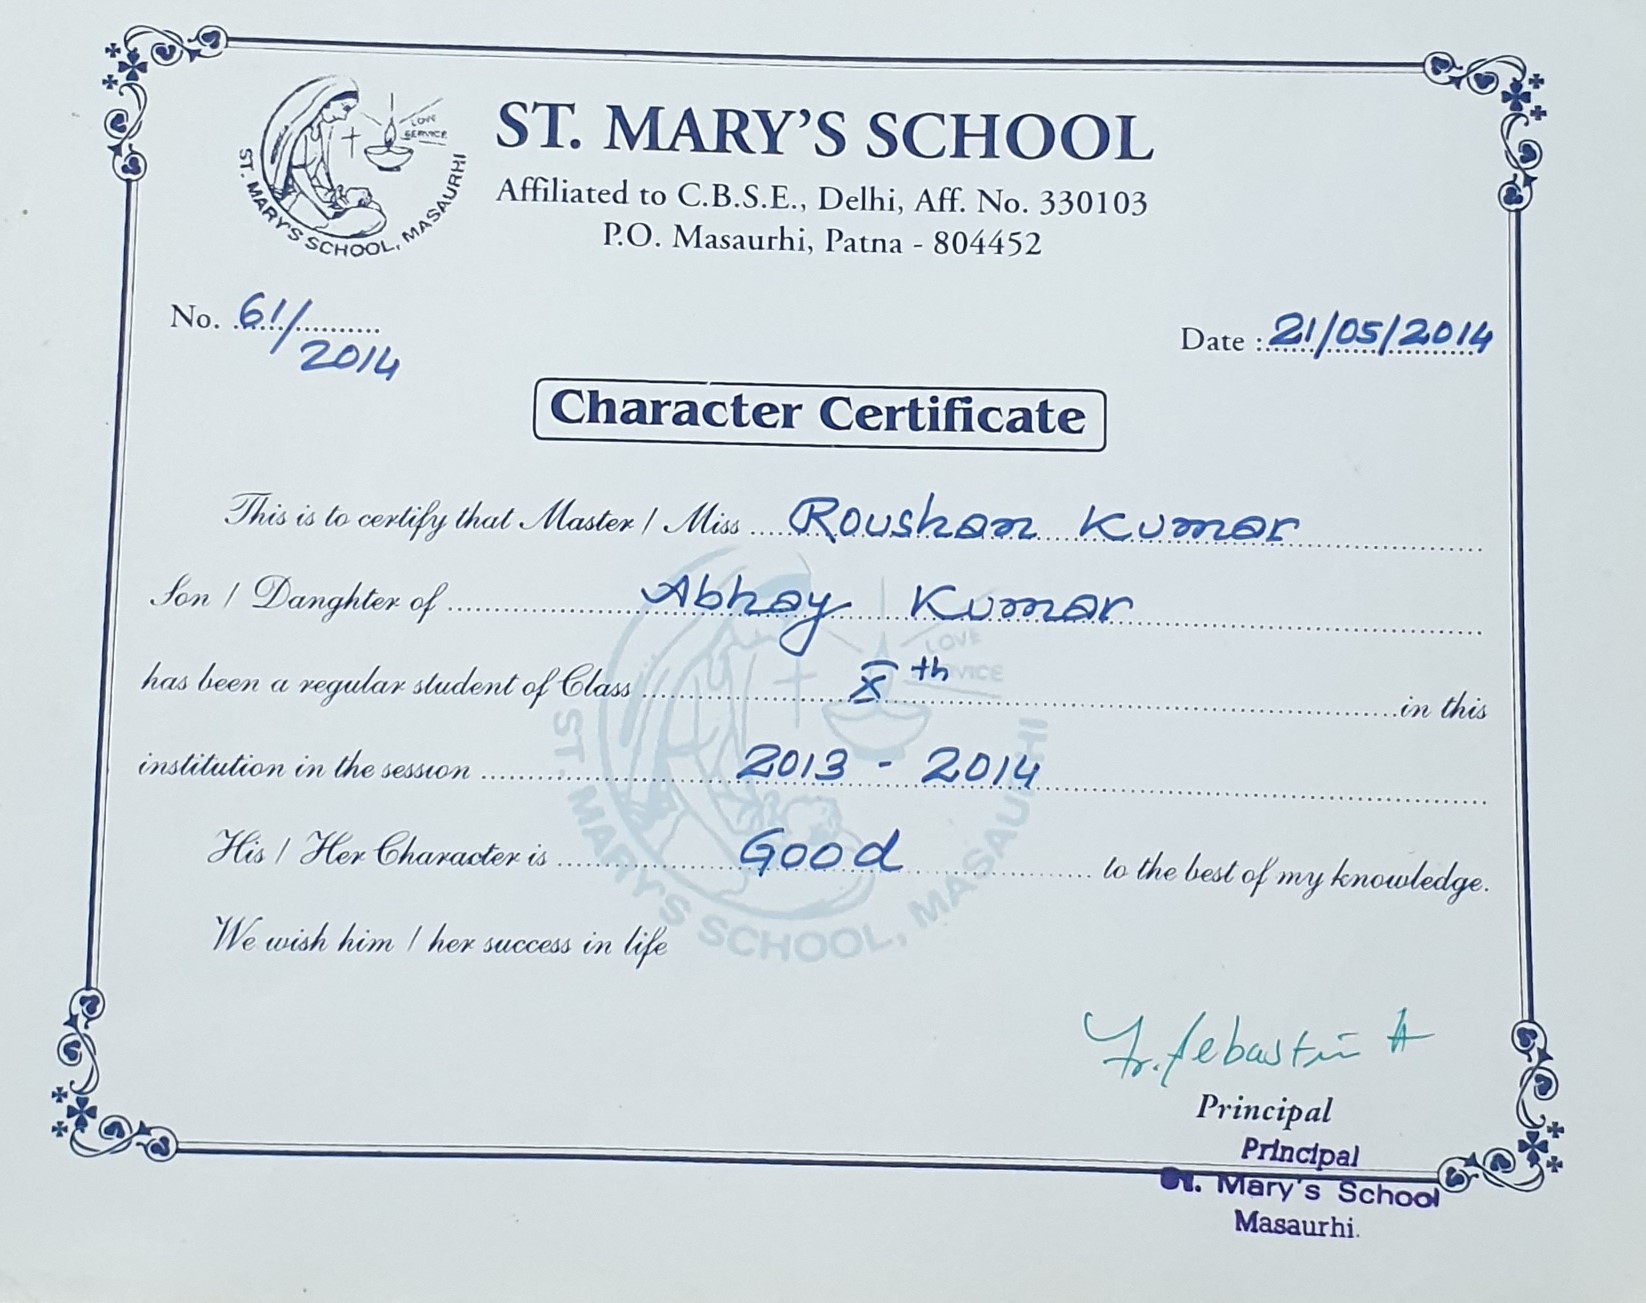 LOVE
SERVICE
ST. MARY'S SCHOOL, MASAURHI
ST. MARY'S SCHOOL
Affiliated to C.B.S.E., Delhi, Aff. No. 330103
P.O. Masaurhi, Patna - 804452
No. 61/2014
Date : 21/05/2014
Character Certificate
This is to certify that Master / Miss Roushan Kumar
Son / Danghter of Abhay Kumar
has been a regular student of Class Xth in this
institution in the session 2013 - 2014
His / Her Character is Good to the best of my knowledge.
We wish him / her success in life
LOVE
SERVICE
ST. MARY'S SCHOOL, MASAURHI
Fr. Sebastin A
Principal
Principal
St. Mary's School
Masaurhi.